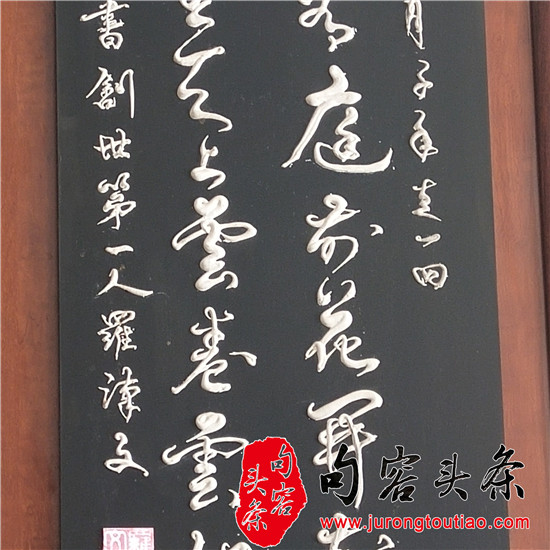 月子年走一回
庭前花開
天上雲卷雲
書創世第一人羅漢文
句容头条
句容头条
www.jurongtoutiao.com